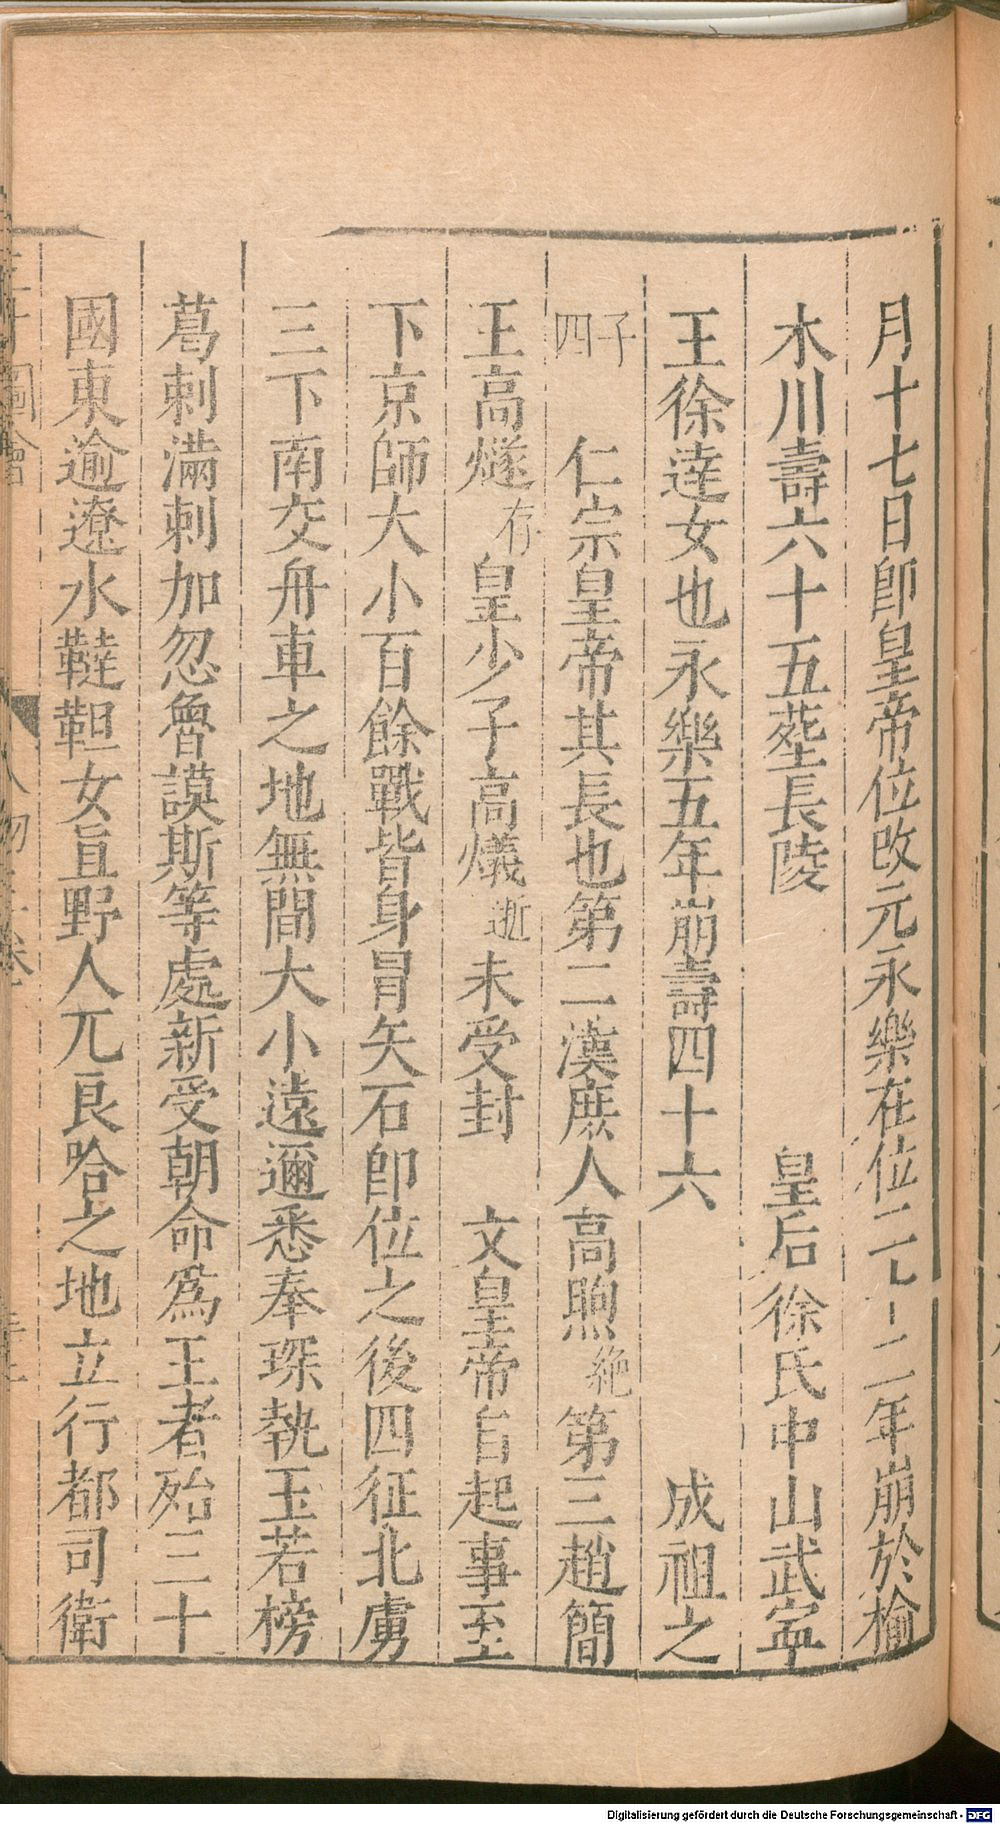 月十七日卽皇帝位改元永樂在位二十二年崩於榆
木川壽六十五塟長陵 皇后徐氏中山武寧
王徐達女也永樂五年崩壽四十六 成祖之
子四 仁宗皇帝其長也第二漢庶人高煦絶第三趙簡
王高燧存皇少子高爔逝未受封 文皇帝自起事至
下京師大小百餘戰皆身冒矢石卽位之後四征北虜
三下南交舟車之地無間大小遠邇悉奉琛執玉若榜
葛剌滿剌加忽魯謨斯等處新受朝命爲王者殆三十
國東逾遼水韃靼女直野人兀良哈之地立行都司衛
三才圖會 人物 卷
Digitalisierung gefördert durch die Deutsche Forschungsgemeinschaft - DFG